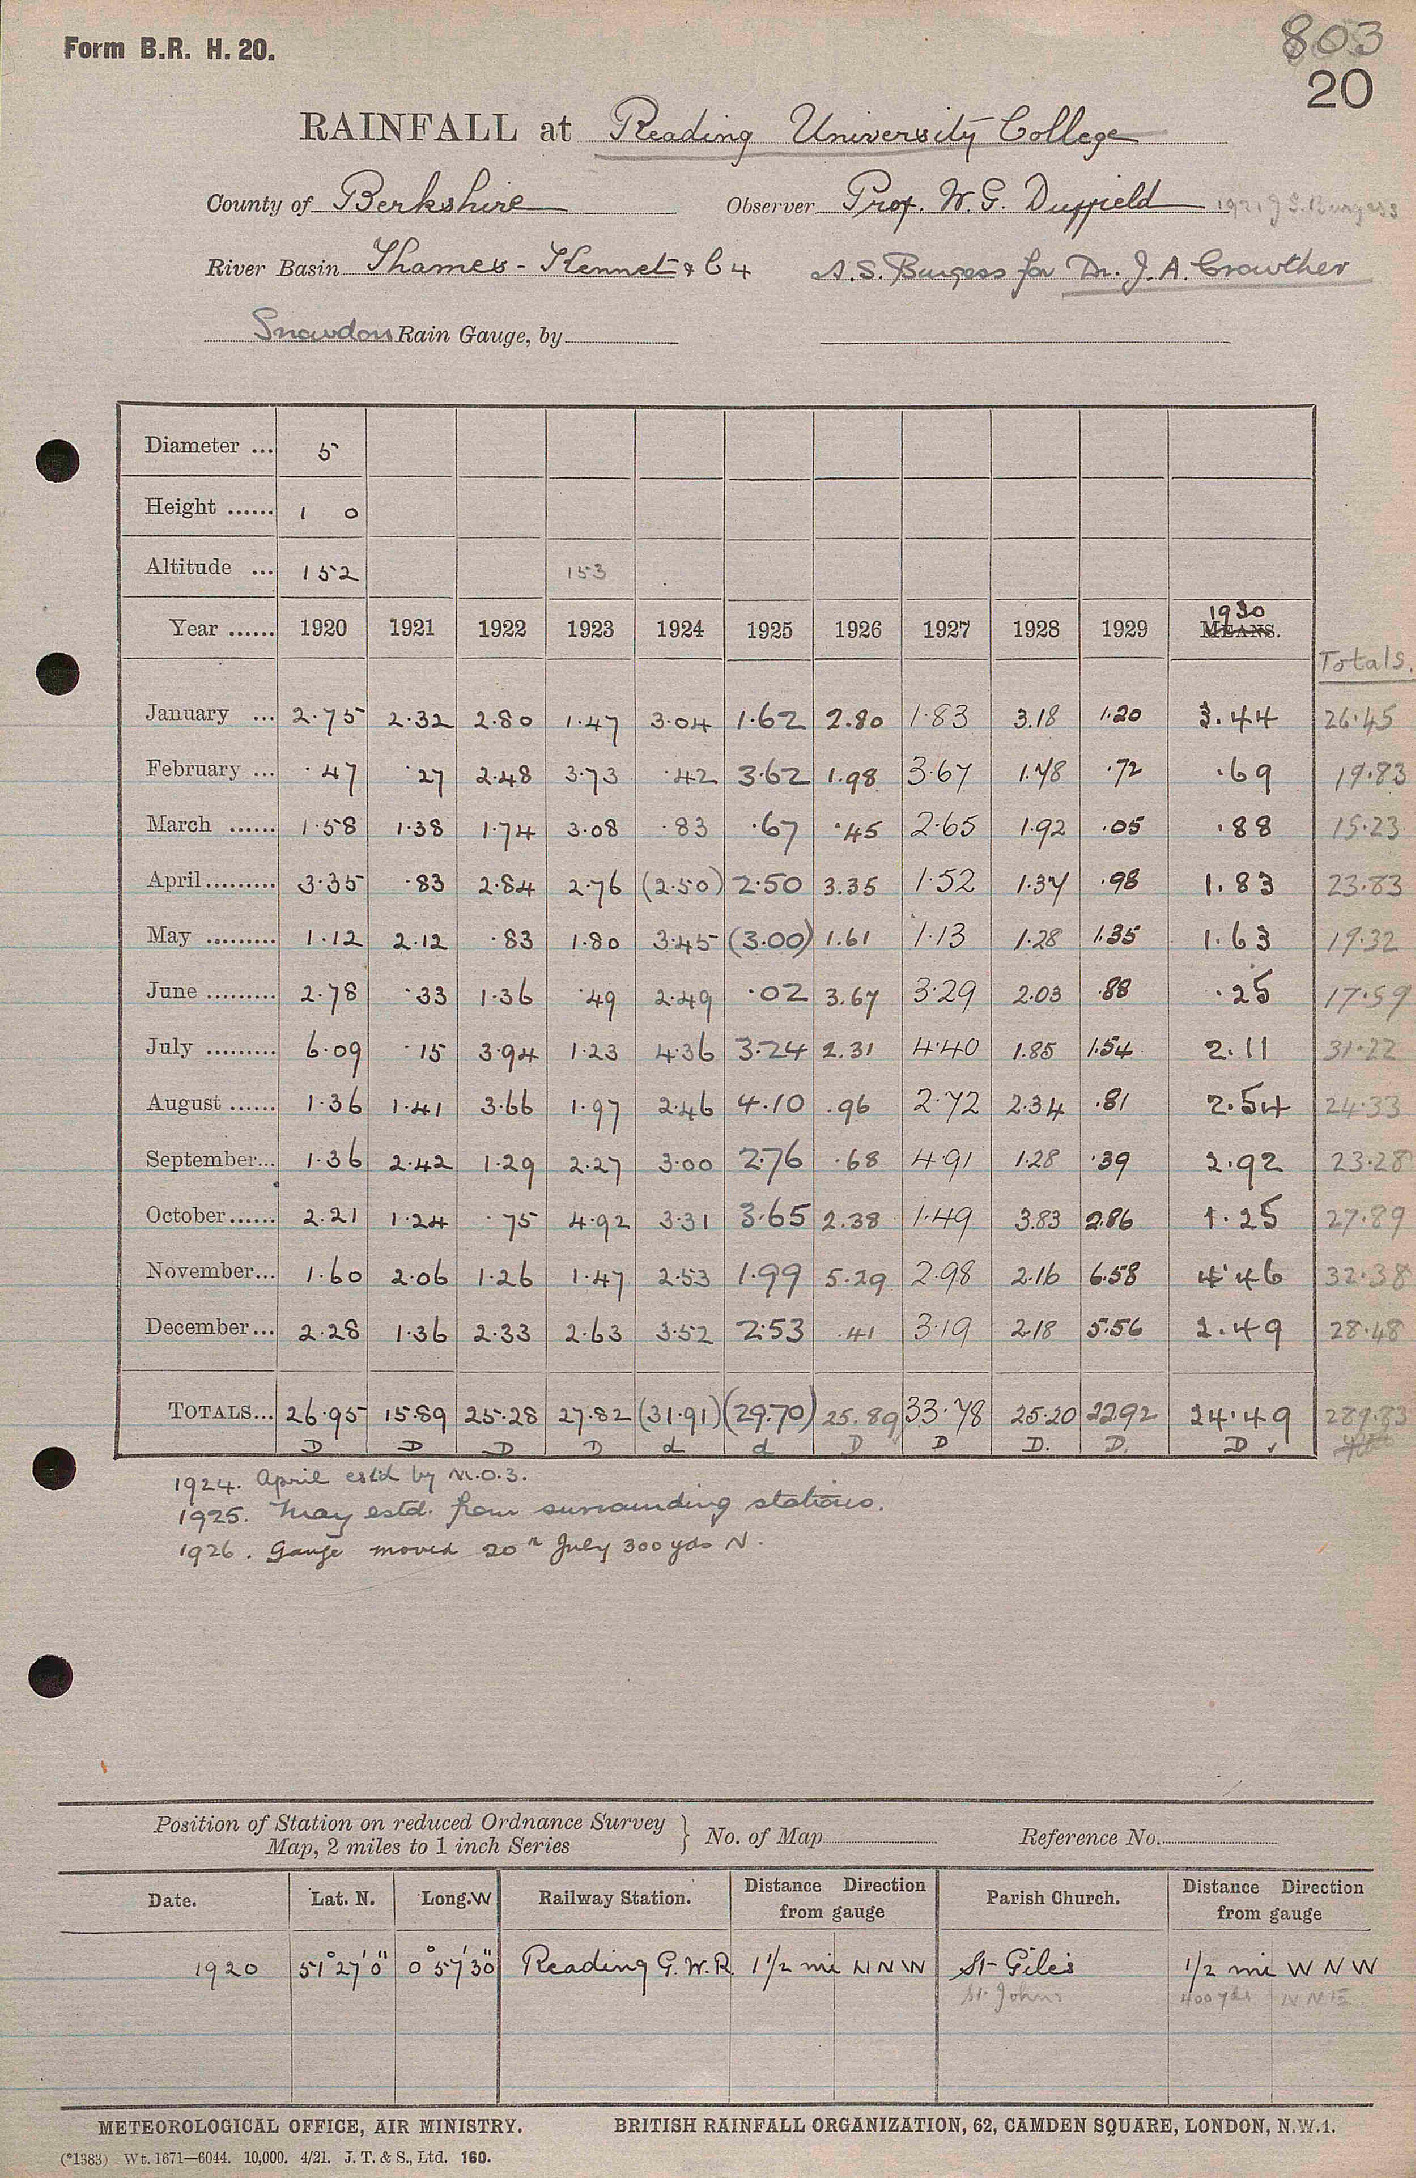 Form B.R. H. 20.
803
20
RAINFALL at Reading University College
County of Berkshire Observer Prof. W. G. Duffield 1921 J S. Burgess
River Basin Thames - Kennet & C4 A. S. Burgess for Dr. J. A. Crowther
Snowdon Rain Gauge, by
Diameter ... 5
Height ...... 1 0
Altitude ... 152 153
Year ...... 1920 1921 1922 1923 1924 1925 1926 1927 1928 1929 1930 MEANS.
Totals.
January ... 2.75 2.32 2.80 1.47 3.04 1.62 2.80 1.83 3.18 1.20 3.44 26.45
February ... .47 .27 2.48 3.73 .42 3.62 1.98 3.67 1.48 .72 .69 19.83
March ...... 1.58 1.38 1.74 3.08 .83 .67 .45 2.65 1.92 .05 .88 15.23
April......... 3.35 .83 2.84 2.76 (2.50) 2.50 3.35 1.52 1.37 .98 1.83 23.83
May ......... 1.12 2.12 .83 1.80 3.45 (3.00) 1.61 1.13 1.28 1.35 1.63 19.32
June ......... 2.78 .33 1.36 .49 2.49 .02 3.67 3.29 2.03 .88 .25 17.59
July ......... 6.09 .15 3.94 1.23 4.36 3.24 2.31 4.40 1.85 1.54 2.11 31.22
August ...... 1.36 1.41 3.66 1.97 2.46 4.10 .96 2.72 2.34 .81 2.54 24.33
September... 1.36 2.42 1.29 2.27 3.00 2.76 .68 4.91 1.28 .39 2.92 23.28
October...... 2.21 1.24 .75 4.92 3.31 3.65 2.38 1.49 3.83 2.86 1.25 27.89
November... 1.60 2.06 1.26 1.47 2.53 1.99 5.29 2.98 2.16 6.58 4.46 32.38
December... 2.28 1.36 2.33 2.63 3.52 2.53 .41 3.19 2.18 5.56 2.49 28.48
TOTALS... 26.95 15.89 25.28 27.82 (31.91) (29.70) 25.89 33.78 25.20 22.92 24.49 289.83
D D D D d d D D D. D. D ✓
1924. April estd by M.O.3.
1925. May estd. from surrounding stations.
1926. Gauge moved 20th July 300 yds N.
Position of Station on reduced Ordnance Survey
Map, 2 miles to 1 inch Series } No. of Map Reference No.
Date. Lat. N. Long. W Railway Station. Distance Direction from gauge Parish Church. Distance Direction from gauge
1920 51° 27' 0" 0° 57' 30" Reading G.W.R. 1 1/2 mi N N W St Giles 1/2 mi W N W
St Johns 400 yds N N E
METEOROLOGICAL OFFICE, AIR MINISTRY. BRITISH RAINFALL ORGANIZATION, 62, CAMDEN SQUARE, LONDON, N.W.1.
(*1383) Wt. 1671—6044. 10,000. 4/21. J. T. & S., Ltd. 160.